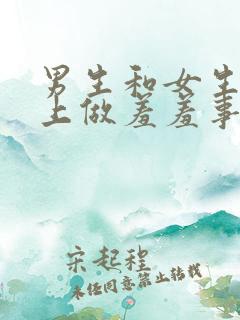 男生和女生
上做羞羞事
宋起程
未经同意禁止转载